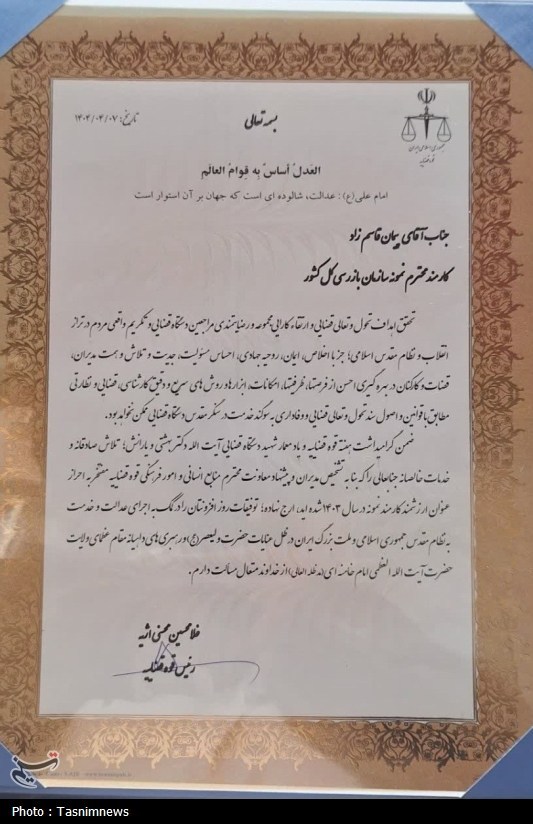 جمهوری اسلامی ایران
قوه قضاییه
بسمه تعالی
تاریخ: ۱۴۰۴/۰۴/۰۷
العَدلُ أساسٌ بِه قِوامُ العالَمِ
امام علی(ع): عدالت، شالوده ای است که جهان بر آن استوار است
جناب آقای پیمان قاسم زاد
کارمند محترم نمونه سازمان بازرسی کل کشور
تحقق اهداف تحول و تعالی قضایی و ارتقاء کارایی مجموعه و رضایتمندی مراجعین دستگاه قضایی و تکریم واقعی مردم در تراز
انقلاب و نظام مقدس اسلامی؛ جز با اخلاص، ایمان، روحیه جهادی، احساس مسؤلیت، جدیت و تلاش و همت مدیران،
قضات و کارکنان در بهره گیری احسن از فرصتها، ظرفیتها، امکانات، ابزارها و روش های سریع و دقیق کارشناسی، قضایی و نظارتی
مطابق با قوانین و اصول سند تحول و تعالی قضایی و وفاداری به سوگند خدمت در سنگر مقدس دستگاه قضایی ممکن نخواهد بود.
ضمن گرامیداشت هفته قوه قضاییه و یاد معمار شهید دستگاه قضایی آیت الله دکتر بهشتی و یارانش؛ تلاش صادقانه و
خدمات خالصانه جنابعالی را که بنا به تشخیص مدیران و پیشنهاد معاونت محترم منابع انسانی و امور فرهنگی قوه قضاییه مفتخر به احراز
عنوان ارزشمند کارمند نمونه در سال ۱۴۰۳ شده اید، ارج نهاده؛ توفیقات روز افزونتان را در کمک به اجرای عدالت و خدمت
به نظام مقدس جمهوری اسلامی و ملت بزرگ ایران در ظل عنایات حضرت ولیعصر(عج) و رهبری های داهیانه مقام عظمای ولایت
حضرت آیت الله العظمی امام خامنه ای(مدظله العالی) از خداوند متعال مسألت دارم.
غلامحسین محسنی اژیه
رئیس قوه قضاییه
تسنیم
Photo : Tasnimnews